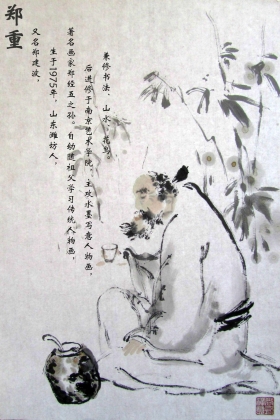 郑重
又名郑建波，
生于1975年，山东潍坊人，
著名画家郑经五之孙。自幼随祖父学习传统人物画，
后进修于南京艺术学院，主攻水墨写意人物画，
兼修书法、山水、花鸟。